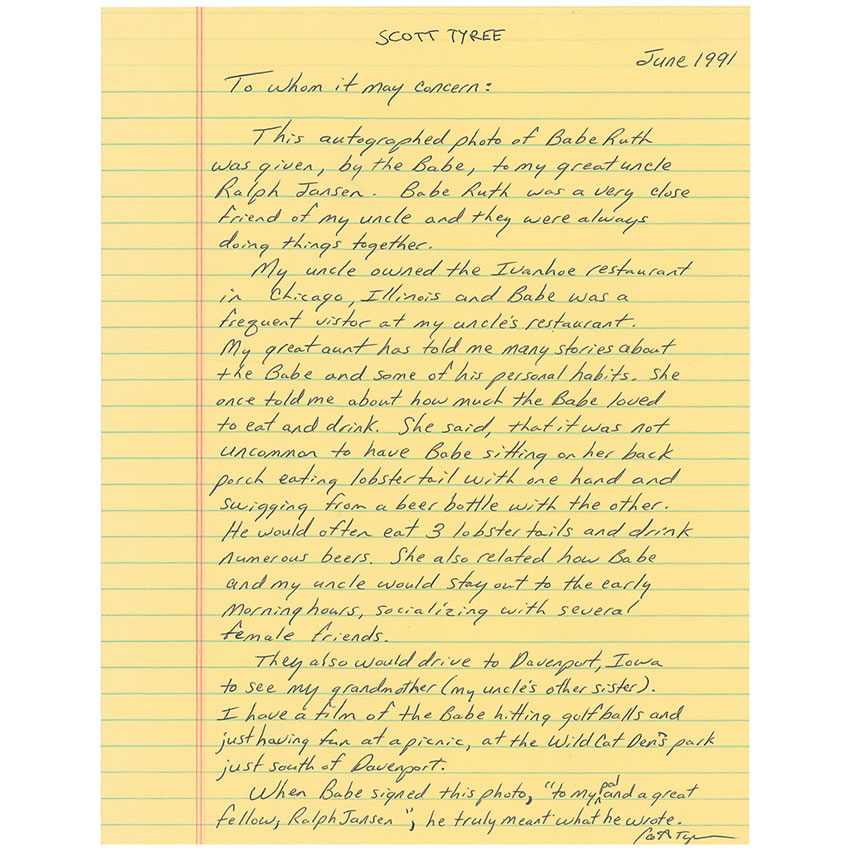 SCOTT TYREE
June 1991
To whom it may concern:
This autographed photo of Babe Ruth
was given, by the Babe, to my great uncle
Ralph Jansen. Babe Ruth was a very close
friend of my uncle and they were always
doing things together.
My uncle owned the Ivanhoe restaurant
in Chicago, Illinois and Babe was a
frequent vistor at my uncle's restaurant.
My great aunt has told me many stories about
the Babe and some of his personal habits. She
once told me about how much the Babe loved
to eat and drink. She said, that it was not
uncommon to have Babe sitting on her back
porch eating lobster tail with one hand and
swigging from a beer bottle with the other.
He would often eat 3 lobster tails and drink
numerous beers. She also related how Babe
and my uncle would stay out to the early
morning hours, socializing with several
female friends.
They also would drive to Davenport, Iowa
to see my grandmother (my uncle's other sister).
I have a film of the Babe hitting golf balls and
just having fun at a picnic, at the Wild Cat Den's park
just south of Davenport.
When Babe signed this photo, "to my pal and a great
fellow, Ralph Jansen", he truly meant what he wrote.